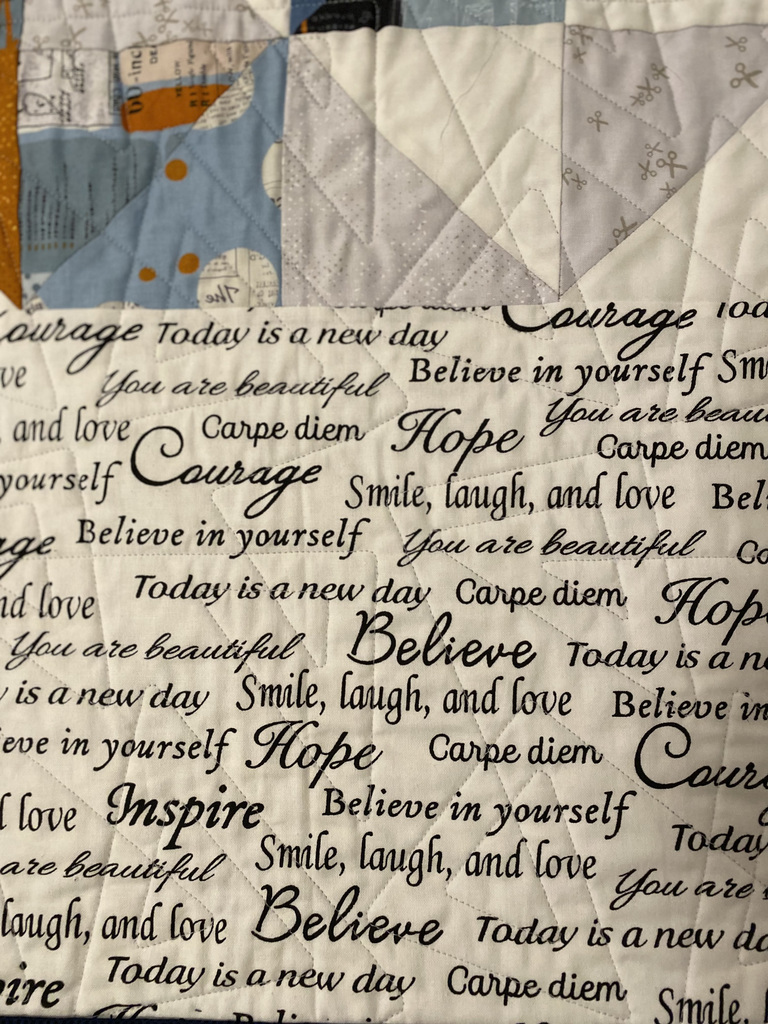 00-inc
DE
YELLOW
The
Courage Today is a new day Courage
You are beautiful Believe in yourself
and love Carpe diem Hope You are
yourself Courage Carpe diem
Smile, laugh, and love
Believe in yourself You are beautiful
and love Today is a new day Carpe diem Hope
You are beautiful Believe Today is a
is a new day Smile, laugh, and love Believe in
in yourself Hope Carpe diem
love Inspire Believe in yourself
Today
are beautiful Smile, laugh, and love You are
laugh, and love Believe Today is a new
Today is a new day Carpe diem Smile,